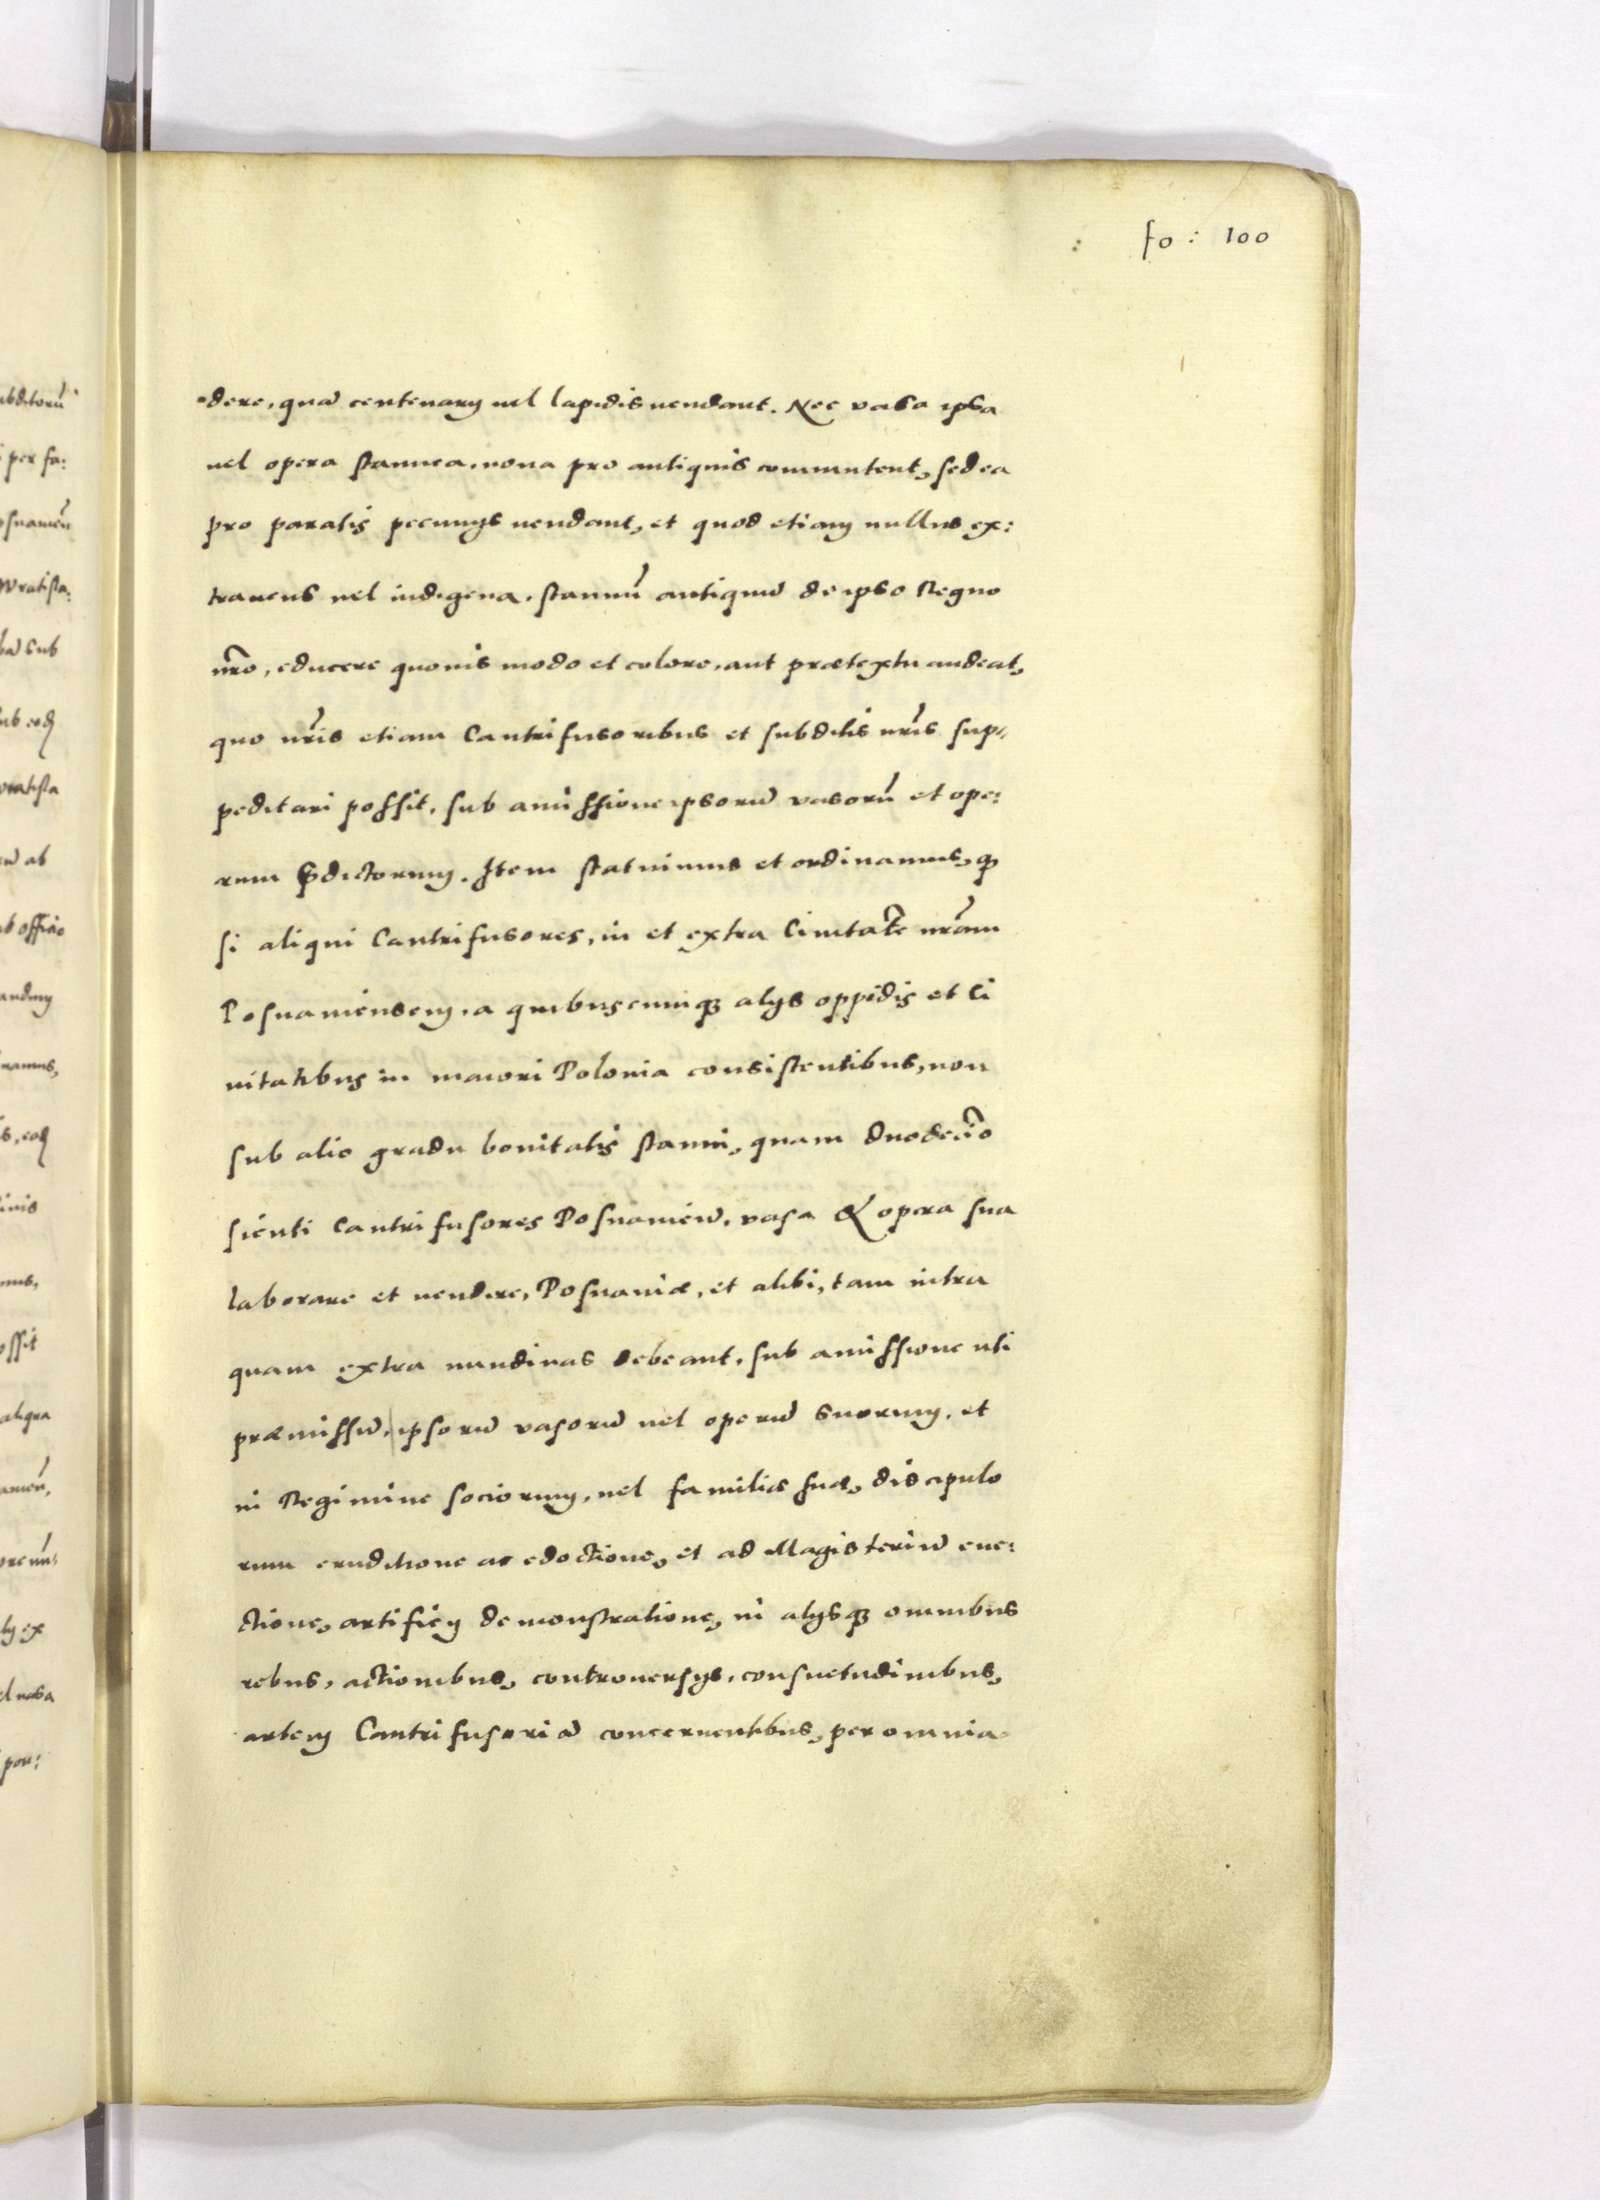 fo : 100
dere, quã centenarÿ uel lapidis uendant. Nec vasa ipsa
uel opera stannea, noua pro antiquis commutent, sed ea
pro paratis pecunÿs uendant, et quod etiam nullus ex:
traneus uel indigena, stannũ antiquũ de ipso Regno
nr̃o, educere quouis modo et colore, aut prætextu audeat,
quo nr̃is etiam Cantrifusoribus et subditis nr̃is sup:
peditari possit, sub amissione ipsorũ vasorũ et ope:
rum p̃dictorum. Item statuimus et ordinamus, qꝫ
si aliqui Cantrifusores, in et extra Ciuitatẽ nr̃am
Posnaniensem, a quibuscunqꝫ alÿs oppidis et Ci
uitatibus in maiori Polonia consistentibus, non
sub alio gradu bonitatis stanni, quam duodecĩo
sicuti Cantrifusores Posnanieñ, vasa & opera sua
laborare et uendere, Posnaniæ, et alibi, tam intra
quam extra nundinas debeant, sub amissione uti
præmissũ, ipsorũ vasorũ uel operũ suorum, et
in Regimine sociorum, uel familiæ suæ, discipulo
rum eruditione ac edoctione, et ad Magisteriũ eue:
ctione, artificÿ demonstratione, in alÿsqꝫ omnibus
rebus, actionibus, controuersÿs, consuetudinibus,
artem Cantrifusoriã concernentibus, per omnia